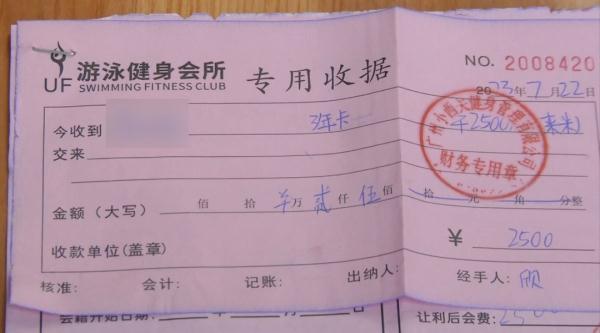 游泳健身会所 专用收据 NO. 2008420
UF SWIMMING FITNESS CLUB
2023年7月22日
今收到 3年卡 2500
交来
广州小西天健身管理有限公司
财务专用章
金额（大写） 佰 拾 万 贰仟 伍佰 拾 元 角 分整
收款单位(盖章) ¥ 2500
核准: 会计: 记账: 出纳人: 经手人:
会籍开始日期: 让利后会费: